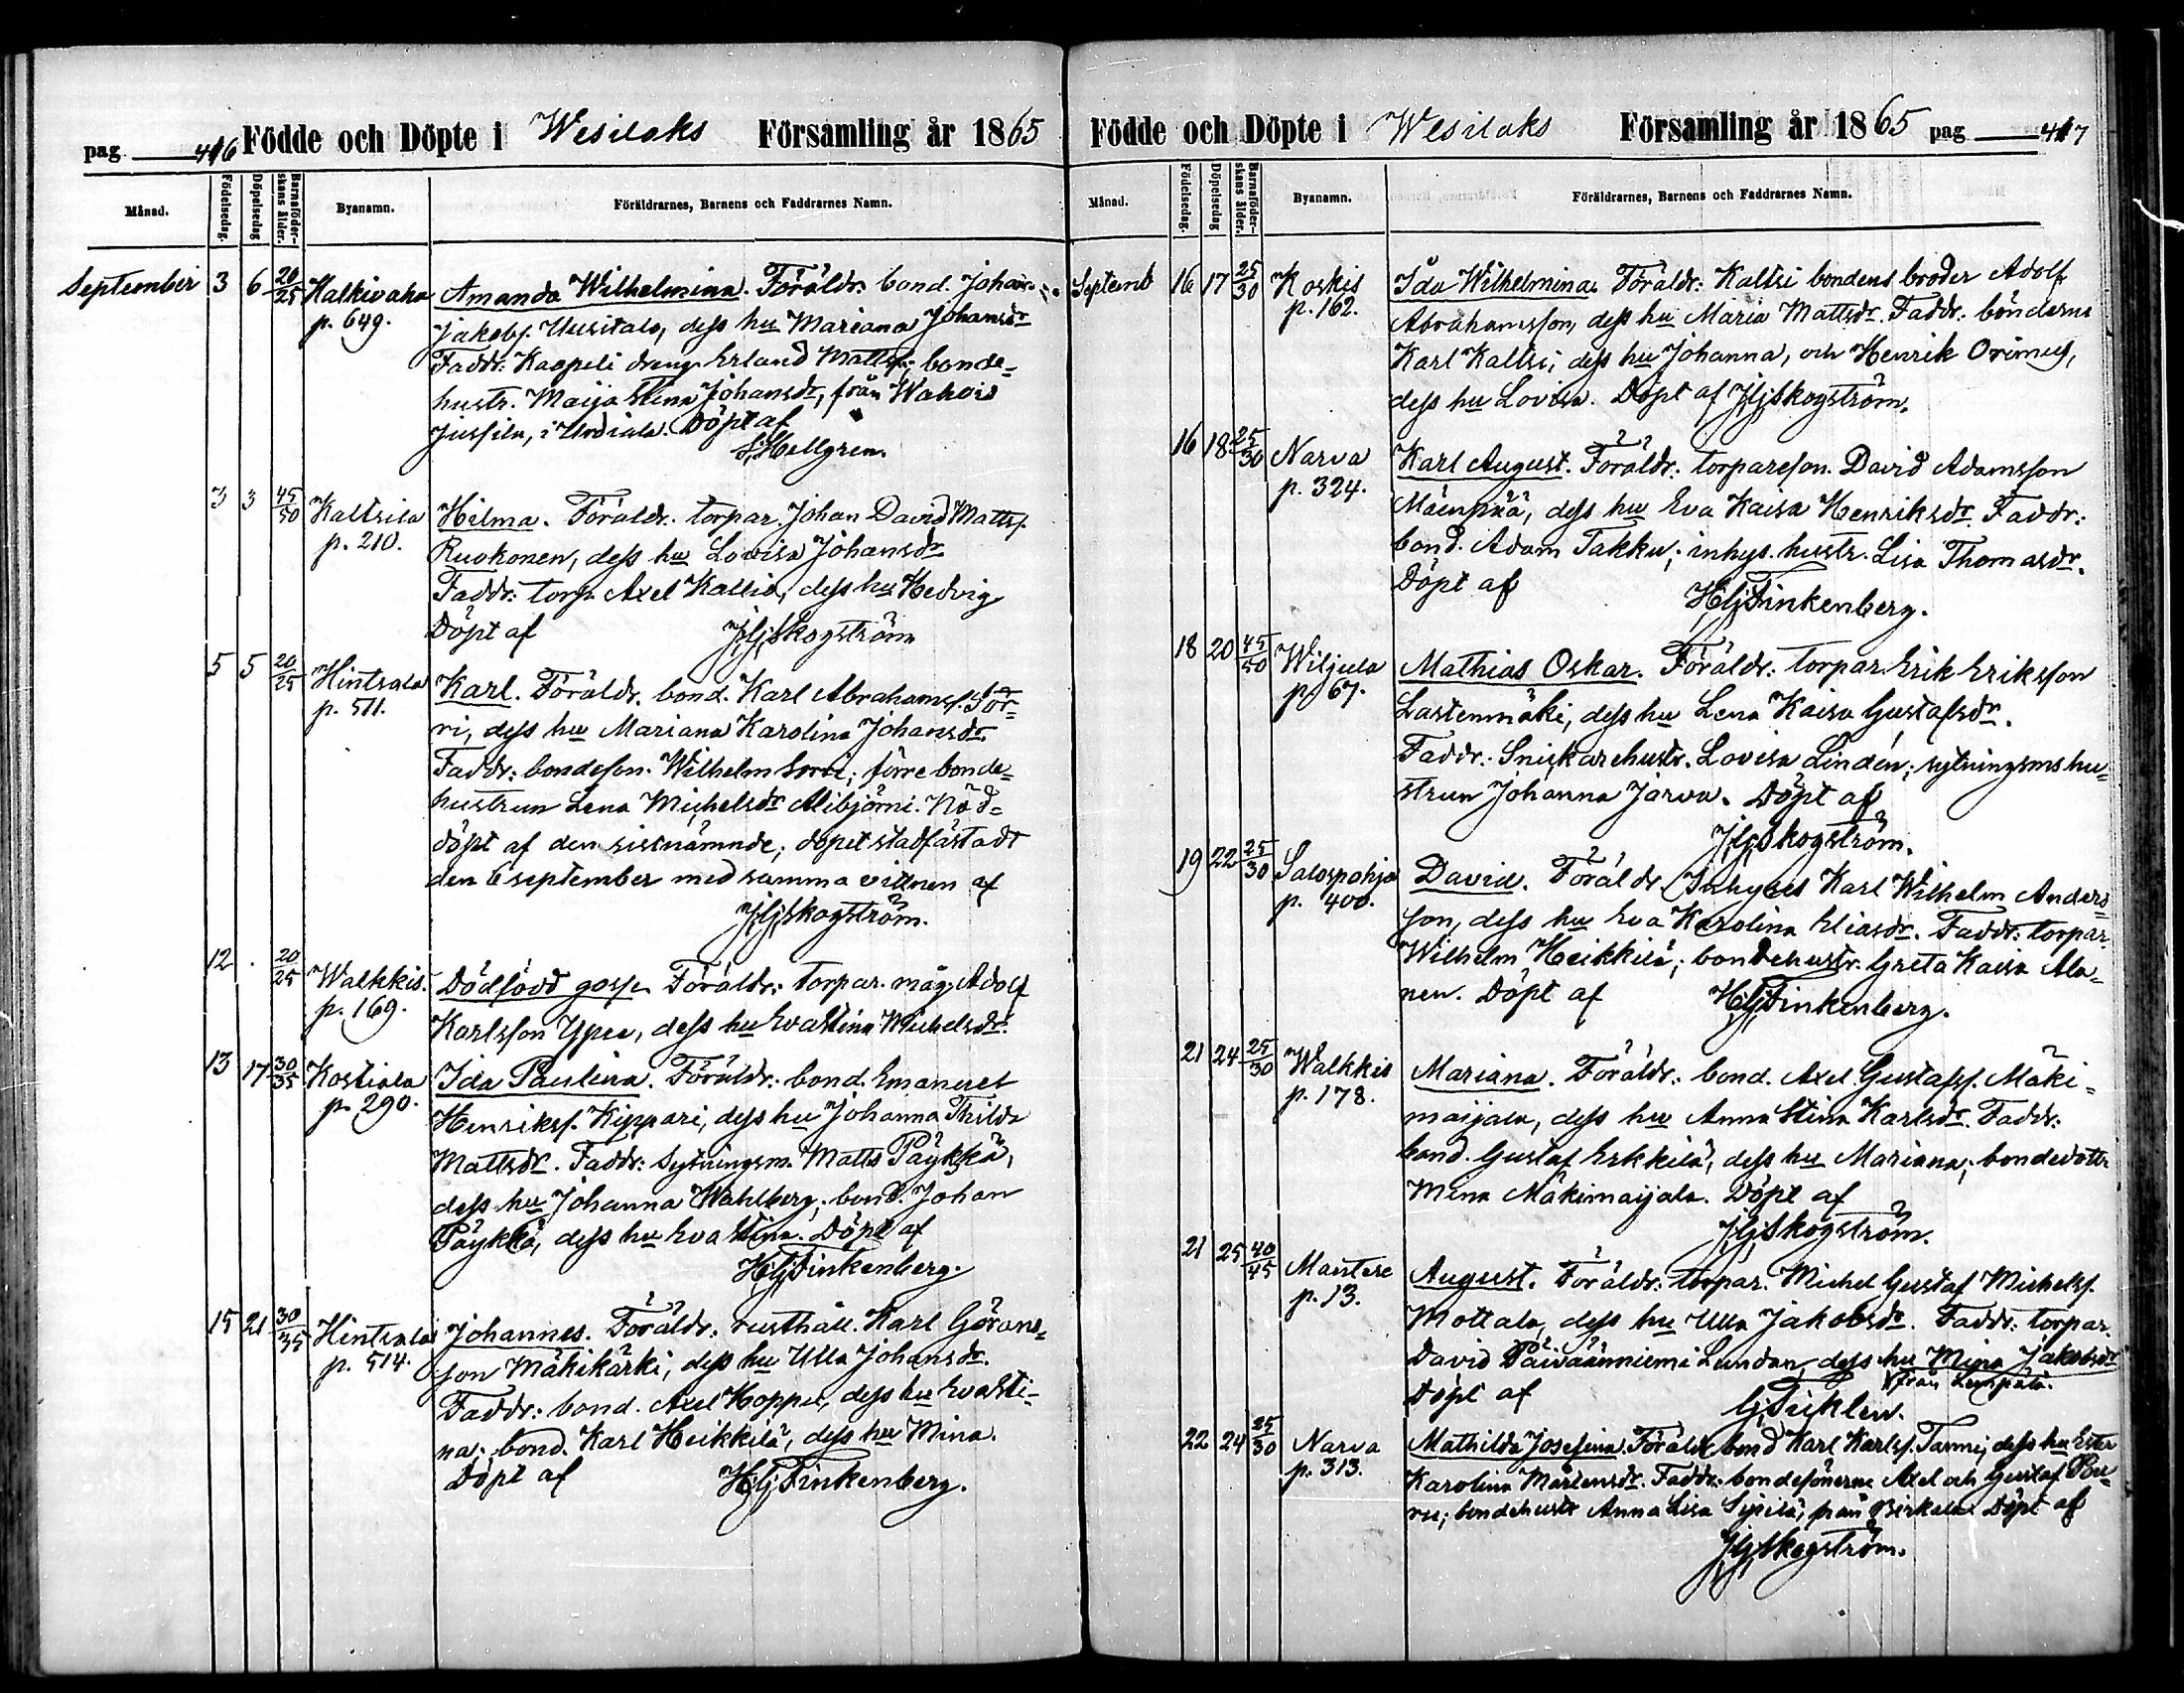 pag 416 Födde och Döpte i Wesilaks Församling år 1865
Månad. Födelsedag. Döpelsedag Barnaföder-skans ålder. Byanamn. Föräldrarnes, Barnens och Faddrarnes Namn.
September 3 6 20/25 Halkivaha Amanda Wilhelmina. Föräldr: bond. Johan
p. 649. Jakobs. Uusitalo, dess hu Mariana Johansdr
Faddr: Kaopeli dreng Erland Mattss; bonde-
hustr. Maija Stina Johansdr, från Wahois
Jussila, i Urdiala. Döpt af
Hellgren.
3 3 45/50 Kaltsila Hilma. Föräldr. torpar. Johan David Mattss.
p. 210. Ruokonen, dess hu Lovisa Johansdr
Faddr: torp. Axel Kallio, dess hu Hedvig
Döpt af Skogström
5 5 20/25 Hintsala Karl. Föräldr. bond. Karl Abrahamss. Sor-
p. 511. ri, dess hu Mariana Karolina Johansdr.
Faddr: bondeson. Wilhelm Sorri; förre bonde-
hustrun Lena Michelsdr Alibjörni. Nöd-
döpt af den sistnämnde; dopet stadfästadt
den 6 september med samma vittnen af
Skogström.
12 . 20/25 Walkkis. Dödfödd gosse. Föräldr: torpar. måg Adolf
p. 169. Karlsson Ypee, dess hu Eva Stina Michelsdr.
13 17 30/35 Kostiala Ida Paulina. Föräldr: bond. Emanuel
p. 290. Henrikss. Kippari, dess hu Johanna Thilda
Mattsdr. Faddr: Sytningsm. Matts Päykkä,
dess hu Johanna Wahlberg; bond. Johan
Päykkä, dess hu Eva Stina. Döpt af
Finkenberg.
15 21 30/35 Hintsala Johannes. Föräldr: rusthåll. Karl Görans-
p. 514. son Mäkikärki, dess hu Ulla Johansdr.
Faddr: bond. Axel Hoppu, dess hu Eva Sti-
na; bond. Karl Heikkilä, dess hu Mina.
Döpt af Finkenberg.
Födde och Döpte i Wesilaks Församling år 1865 pag 417
Månad. Födelsedag. Döpelsedag Barnaföder-skans ålder. Byanamn. Föräldrarnes, Barnens och Faddrarnes Namn.
Septemb 16 17 25/30 Koskis Ida Wilhelmina. Föräldr: Kaltsi bondens broder Adolf
p. 162. Abrahamsson, dess hu Maria Mattsdr. Faddr: bönderne
Karl Kaltsi, dess hu Johanna, och Henrik Orimus,
dess hu Lovisa. Döpt af Skogström.
16 18 25/30 Narva Karl August. Föräldr: torpareson. David Adamsson
p. 324. Mäenpää, dess hu Eva Kaisa Henriksdr. Faddr:
bond. Adam Takku; inhys. hustr. Lisa Thomasdr.
Döpt af Finkenberg.
18 20 45/50 Wiljula Mathias Oskar. Föräldr: torpar. Erik Eriksson
p. 67. Lastenmäki, dess hu Lena Kaisa Gustafsdr.
Faddr: Snickarehustr. Lovisa Lindén; sytningsms hu-
strun Johanna Järva. Döpt af
Skogström.
19 22 25/30 Salospohja David. Föräldr. Inhyses Karl Wilhelm Anders-
p. 400. son, dess hu Eva Karolina Eliasdr. Faddr: torpar.
Wilhelm Heikkilä; bondehustr. Greta Kaisa Ala-
nen. Döpt af Finkenberg.
21 24 25/30 Walkkis Mariana. Föräldr: bond. Axel Gustafss. Mäki-
p. 178. maijala, dess hu Anna Stina Karlsdr. Faddr:
bond. Gustaf Erkkilä, dess hu Mariana; bondedottr
Mina Mäkimaijala. Döpt af
Skogström.
21 25 40/45 Mantere August. Föräldr: torpar. Michel Gustaf Michelss.
p. 13. Mottala, dess hu Ulla Jakobsdr. Faddr: torpar.
David Päivääniemi Lundan, dess hu Mina Jakobsdr
från Lempälä.
Döpt af
22 24 25/30 Narva Mathilda Josefina. Föräldr bond Karl Karlss. Tanni, dess hu Ester
p. 313. Karolina Mårtensdr. Faddr: bondesönerne Axel och Gustaf Pu-
ru; bondehustr Anna Lisa Sipilä, från Birkala. Döpt af
Skogström.